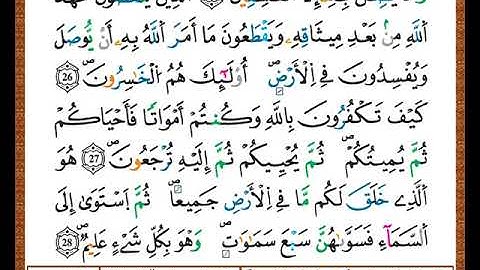 اَللَّهِ مِنۢ بَعْدِ مِيثَاقِهِۦ وَيَقْطَعُونَ مَا أَمَرَ اَللَّهُ بِهِۦ أَنْ يُّوصَلَ
وَيُفْسِدُونَ فِے اِلْأَرْضِۖ أُوْلَٰٓئِكَ هُمُ اُلْخَٰسِرُونَۖ ٢٦
كَيْفَ تَكْفُرُونَ بِاللَّهِ وَكُنتُمْ أَمْوَٰتاً فَأَحْيَاكُمْ
ثُمَّ يُمِيتُكُمْۖ ثُمَّ يُحْيِيكُمْ ثُمَّ إِلَيْهِ تُرْجَعُونَۖ ٢٧ هُوَ
اَلَّذِے خَلَقَ لَكُم مَّا فِے اِلْأَرْضِ جَمِيعاًۖ ثُمَّ اَسْتَوَىٰ إِلَى
اَلسَّمَآءِ فَسَوَّىٰهُنَّ سَبْعَ سَمَٰوَٰتٖۖ وَهُوَ بِكُلِّ شَےْءٍ عَلِيمٌۖ ٢٨